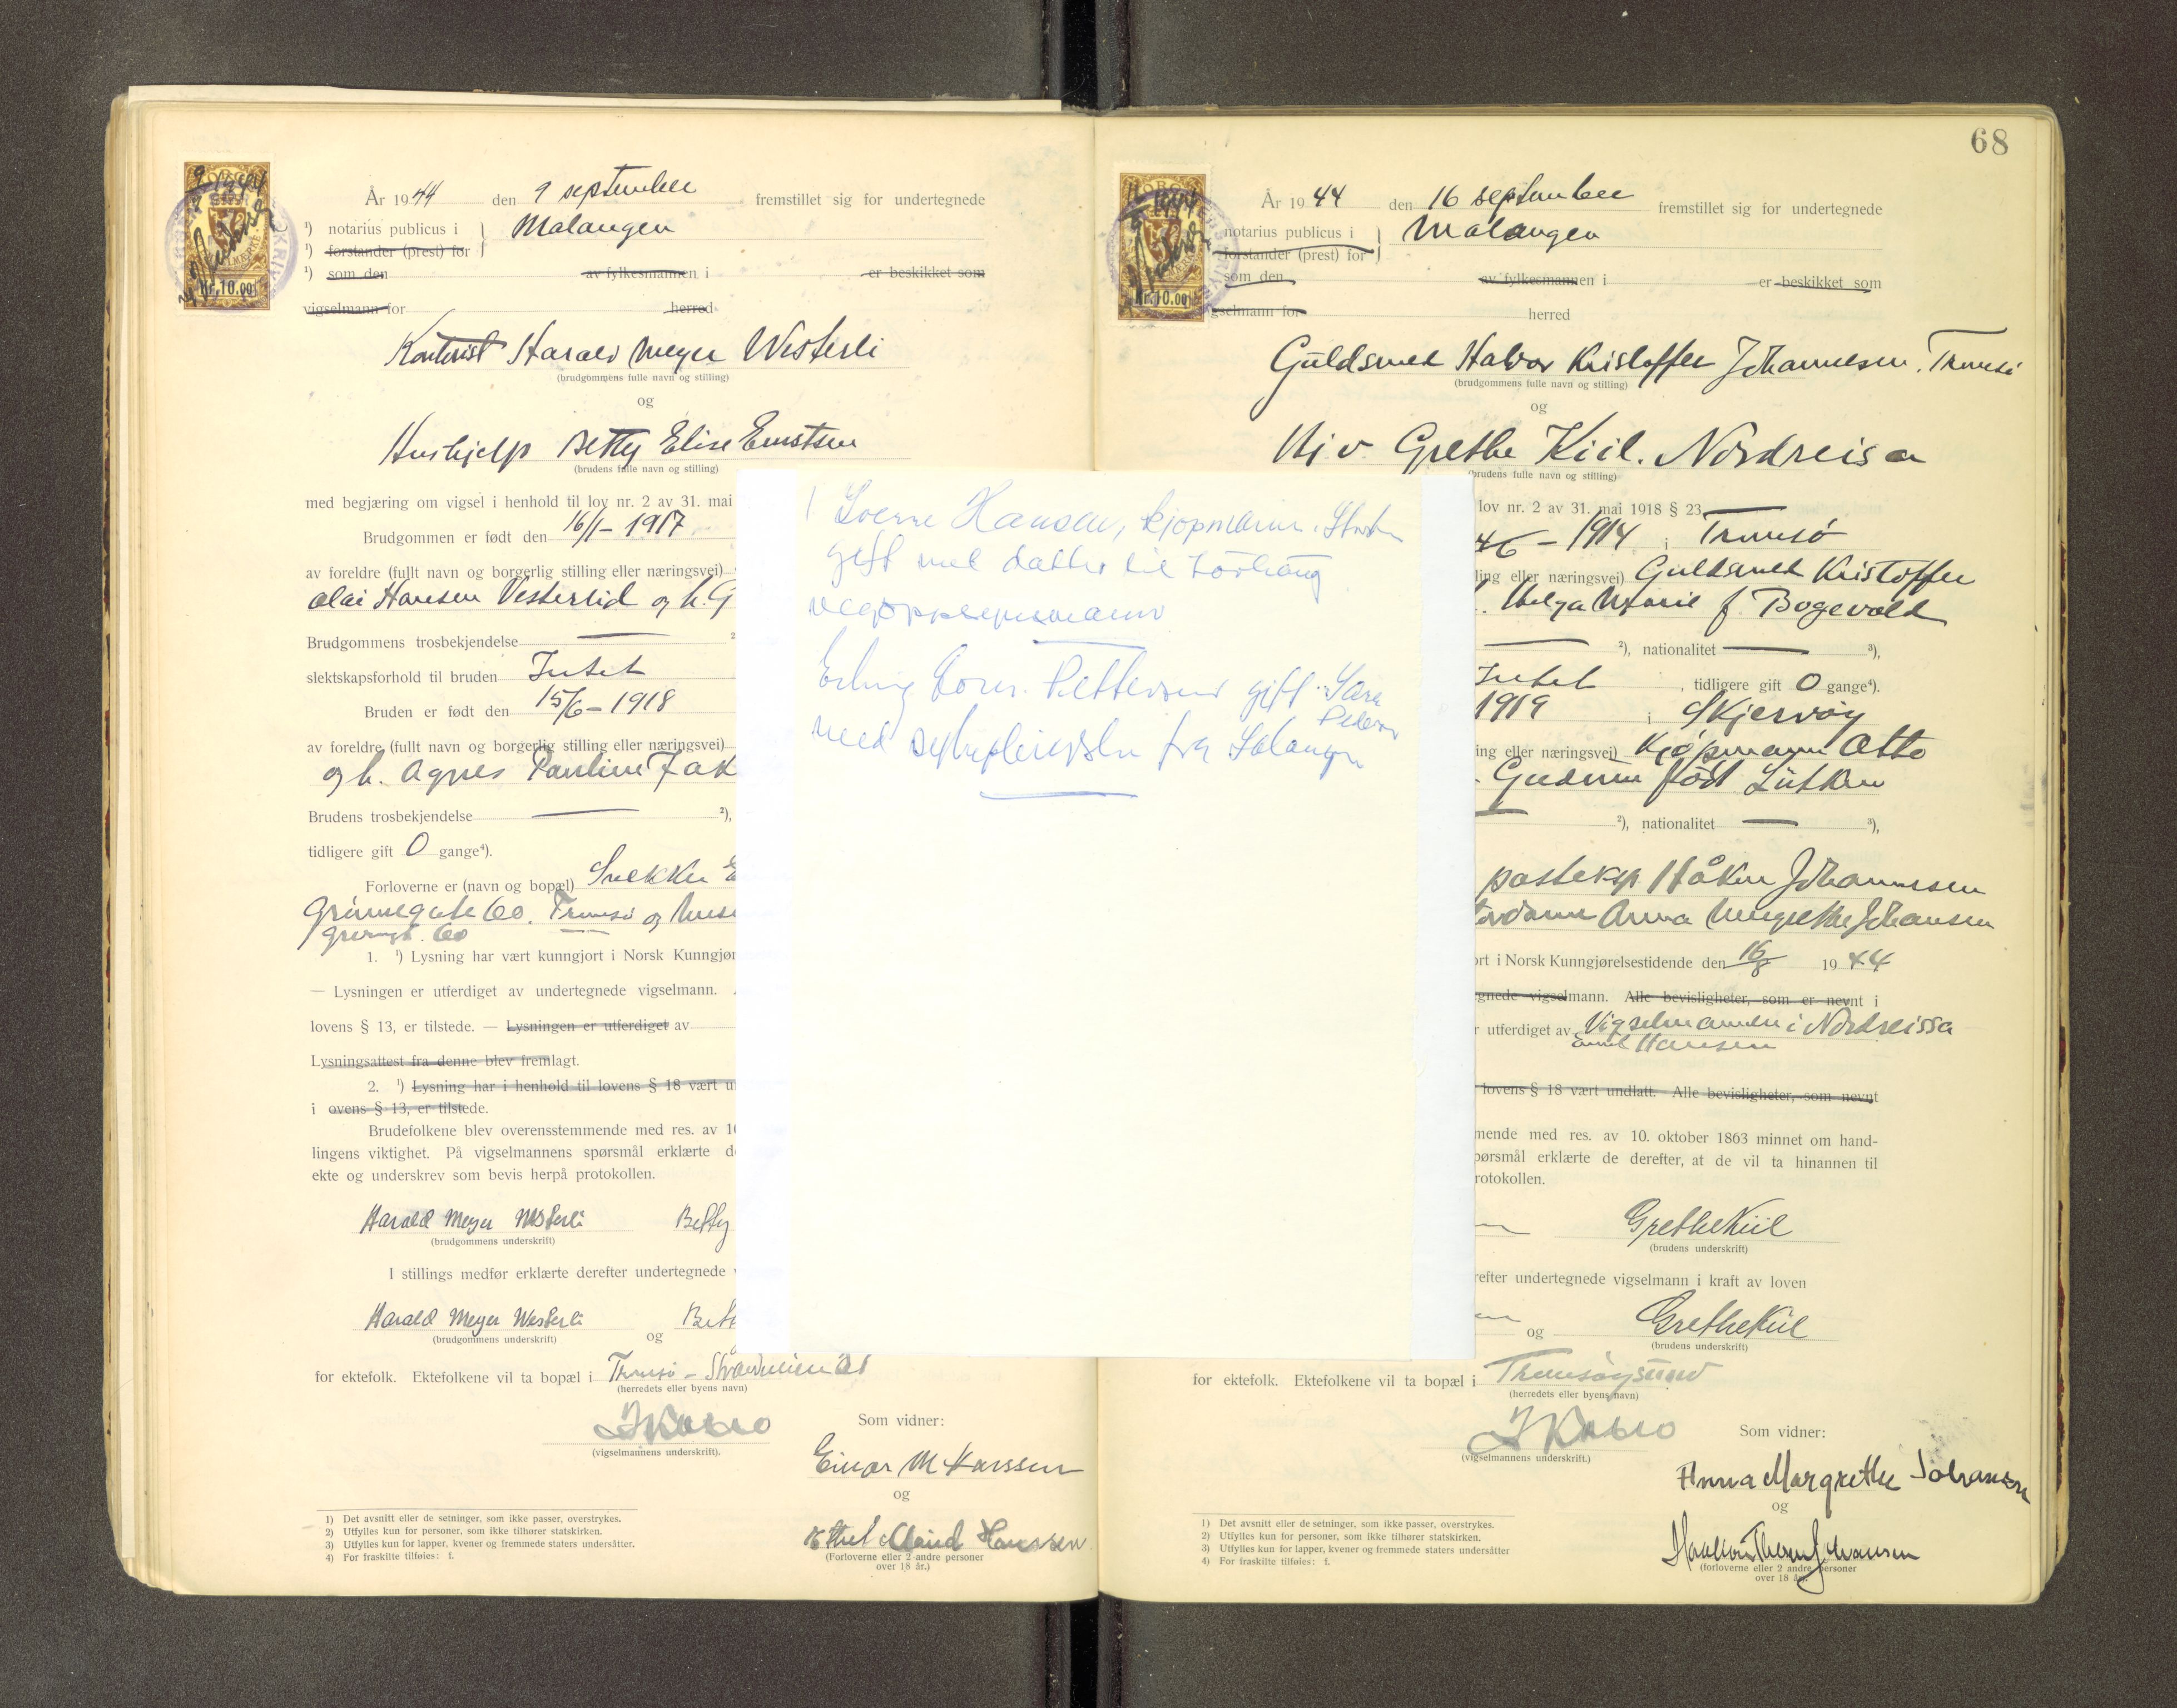 År 1944 den 9 september fremstillet sig for undertegnede
¹) notarius publicus i Malangen
¹) forstander (prest) for
¹) som den av fylkesmannen i er beskikket som
vigselmann for herred
Kontorist Harald Meyer Westerli
(brudgommens fulle navn og stilling)
og
Hushjelp Betty Elise Ernstsen
(brudens fulle navn og stilling)
med begjæring om vigsel i henhold til lov nr. 2 av 31. mai
Brudgommen er født den 16/1 - 1917
av foreldre (fullt navn og borgerlig stilling eller næringsvei)
Olai Hansen Vesterlid og h. G
Brudgommens trosbekjendelse —
slektskapsforhold til bruden Intet
Bruden er født den 15/6 - 1918
av foreldre (fullt navn og borgerlig stilling eller næringsvei)
og h. Agnes Pauline Jak
Brudens trosbekjendelse — ²),
tidligere gift 0 gange⁴).
Forloverne er (navn og bopæl) Snekker E
Grønnegate 60. Tromsø og
60
1. ¹) Lysning har vært kunngjort i Norsk Kunngjør
— Lysningen er utferdiget av undertegnede vigselmann.
lovens § 13, er tilstede. — Lysningen er utferdiget av
Lysningsattest fra denne blev fremlagt.
2. ¹) Lysning har i henhold til lovens § 18 vært u
i ovens § 13, er tilstede.
Brudefolkene blev overensstemmende med res. av 1
lingens viktighet. På vigselmannens spørsmål erklærte d
ekte og underskrev som bevis herpå protokollen.
Harald Meyer Westerli Betty
(brudgommens underskrift)
I stillings medfør erklærte derefter undertegnede
Harald Meyer Westerli Bett
(brudgommens underskrift) og
for ektefolk. Ektefolkene vil ta bopæl i Tromsø -
(herredets eller byens navn)
(vigselmannens underskrift).
Som vidner:
Einar M Karssen
og
Hanssen
(Forloverne eller 2 andre personer
over 18 år.)
1) Det avsnitt eller de setninger, som ikke passer, overstrykes.
2) Utfylles kun for personer, som ikke tilhører statskirken.
3) Utfylles kun for lapper, kvener og fremmede staters undersåtter.
4) For fraskilte tilføies: f.
Kr. 10.00
Sverre Hansen, kjøpmann,
gift med datter til
vegoppsynsmann
Erling Pettersen gift Sara
Peders
med sykepleierske fra Salangen
68
Kr. 10.00
År 1944 den 16 september fremstillet sig for undertegnede
notarius publicus i Malangen
forstander (prest) for
som den av fylkesmannen i er beskikket som
gselmann for herred
Guldsmed Halvor Kristoffer Johannesen. Tromsø
(brudgommens fulle navn og stilling)
og
Grethe Kiil. Nordreisa
(brudens fulle navn og stilling)
lov nr. 2 av 31. mai 1918 § 23
- 1914 i Tromsø
ling eller næringsvei) Guldsmed Kristoffer
Helga Marie f. Bogevold
— ²), nationalitet — ³),
Intet, tidligere gift 0 gange⁴).
1919 i Skjervøy
ing eller næringsvei) Kjøpmann Otto
Gudrun født Lütken
— ²), nationalitet — ³),
posteksp. Håkon Johannesen
Anna Margrethe Johansen
ort i Norsk Kunngjørelsestidende den 16/8 1944
gnede vigselmann. Alle bevisligheter, som er nevnt i
r utferdiget av Vigselmannen i Nordreissa
Emil Hansen
lovens § 18 vært undlatt. Alle bevisligheter, som nevnt
mende med res. av 10. oktober 1863 minnet om hand-
pørsmål erklærte de derefter, at de vil ta hinannen til
rotokollen.
Grethe Kiil
(brudens underskrift)
refter undertegnede vigselmann i kraft av loven
og Grethe Kiil
(brudens underskrift)
for ektefolk. Ektefolkene vil ta bopæl i Tromsøysund
(herredets eller byens navn)
(vigselmannens underskrift.)
Som vidner:
Anna Margrethe Johansen
og
(forloverne eller 2 andre personer
over 18 år.)
1) Det avsnitt eller de setninger, som ikke passer, overstrykes.
2) Utfylles kun for personer, som ikke tilhører statskirken.
3) Utfylles kun for lapper, kvener og fremmede staters undersåtter
4) For fraskilte tilføies: f.